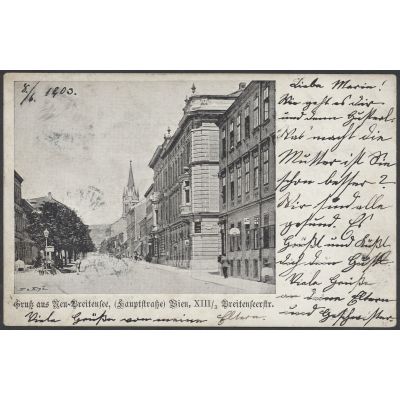 8/6. 1903.
Liebe Marie!
Wie geht es dir
und denn Gusterl
Was macht die
Mutter ist Sie
schon besser?
Wir sind alle
gesund. Es
Grüßt und Küßt
dich dein
Viele Grüße
an deine Eltern
und Geschwister.
Gruß aus Neu-Breitensee, (Hauptstraße) Wien, XIII/2 Breitenseerstr.
Viele Grüße von meine Eltern.